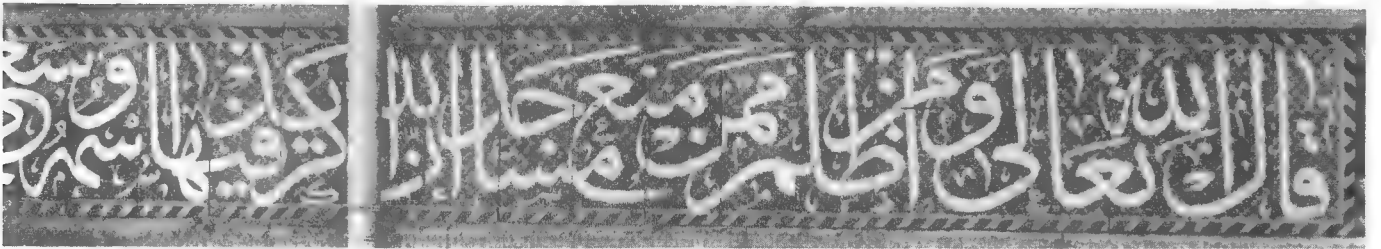 قال الله تعالى ومن أظلم ممن منع مساجد الله أن يذكر فيها اسمه وسعى